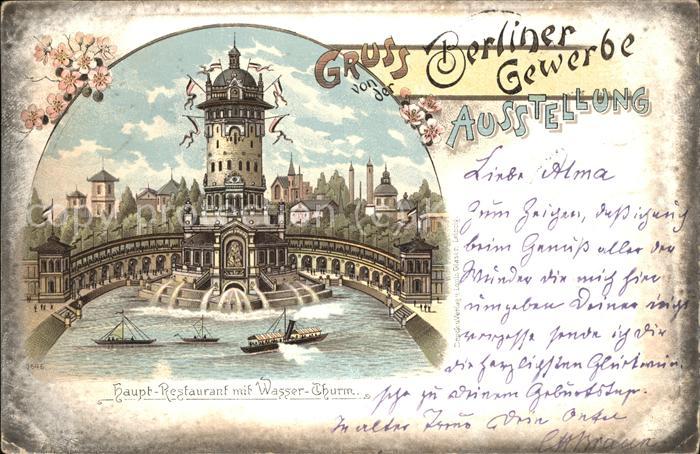 Gruss
von
der
Berliner
Gewerbe
Ausstellung
Liebe Alma
Zum Zeichen, daß ich auch
beim Genuß aller der
Wunder die mich hier
umgeben Deiner nicht
vergesse sende ich Dir
die herzlichsten Glückwün-
sche zu Deinem Geburtstage.
In alter Treue Dein Onkel
Braun
Haupt-Restaurant mit Wasser-Thurm.
1646